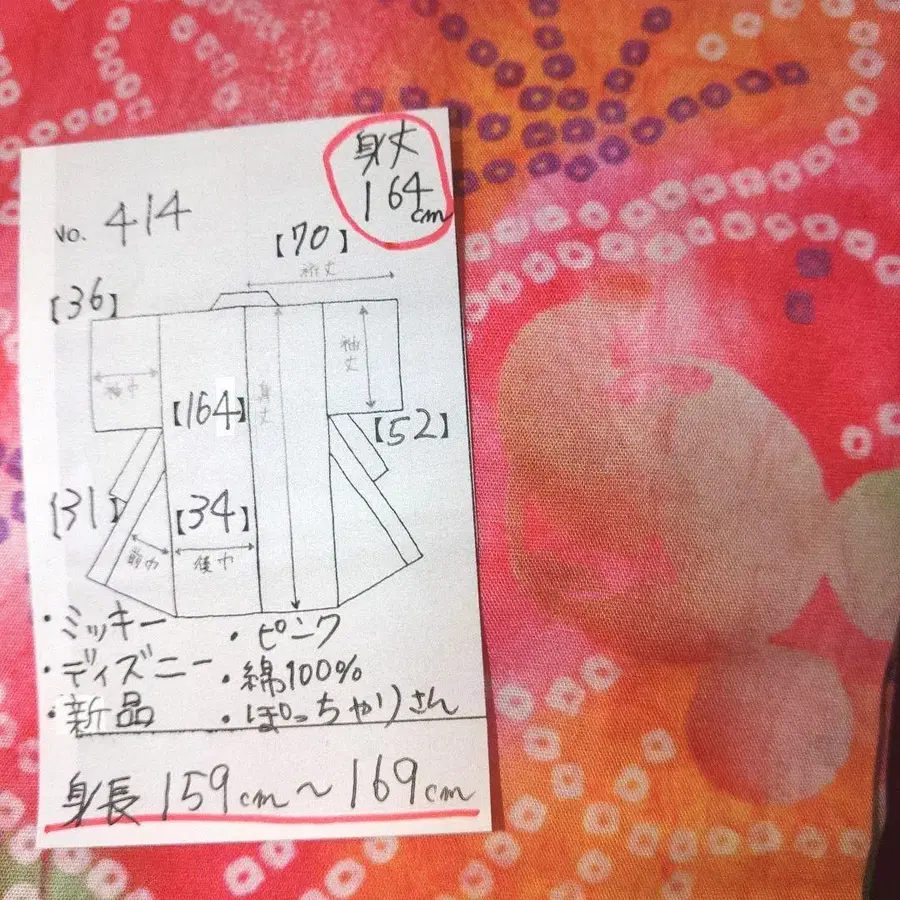 身丈
164cm
No. 414
【70】
裄丈
【36】
袖巾
袖丈
身丈
【164】
【52】
【31】
【34】
前巾
後巾
・ミッキー
・ピンク
・ディズニー
・綿100%
・新品
・ぽっちゃりさん
身長 159cm～169cm